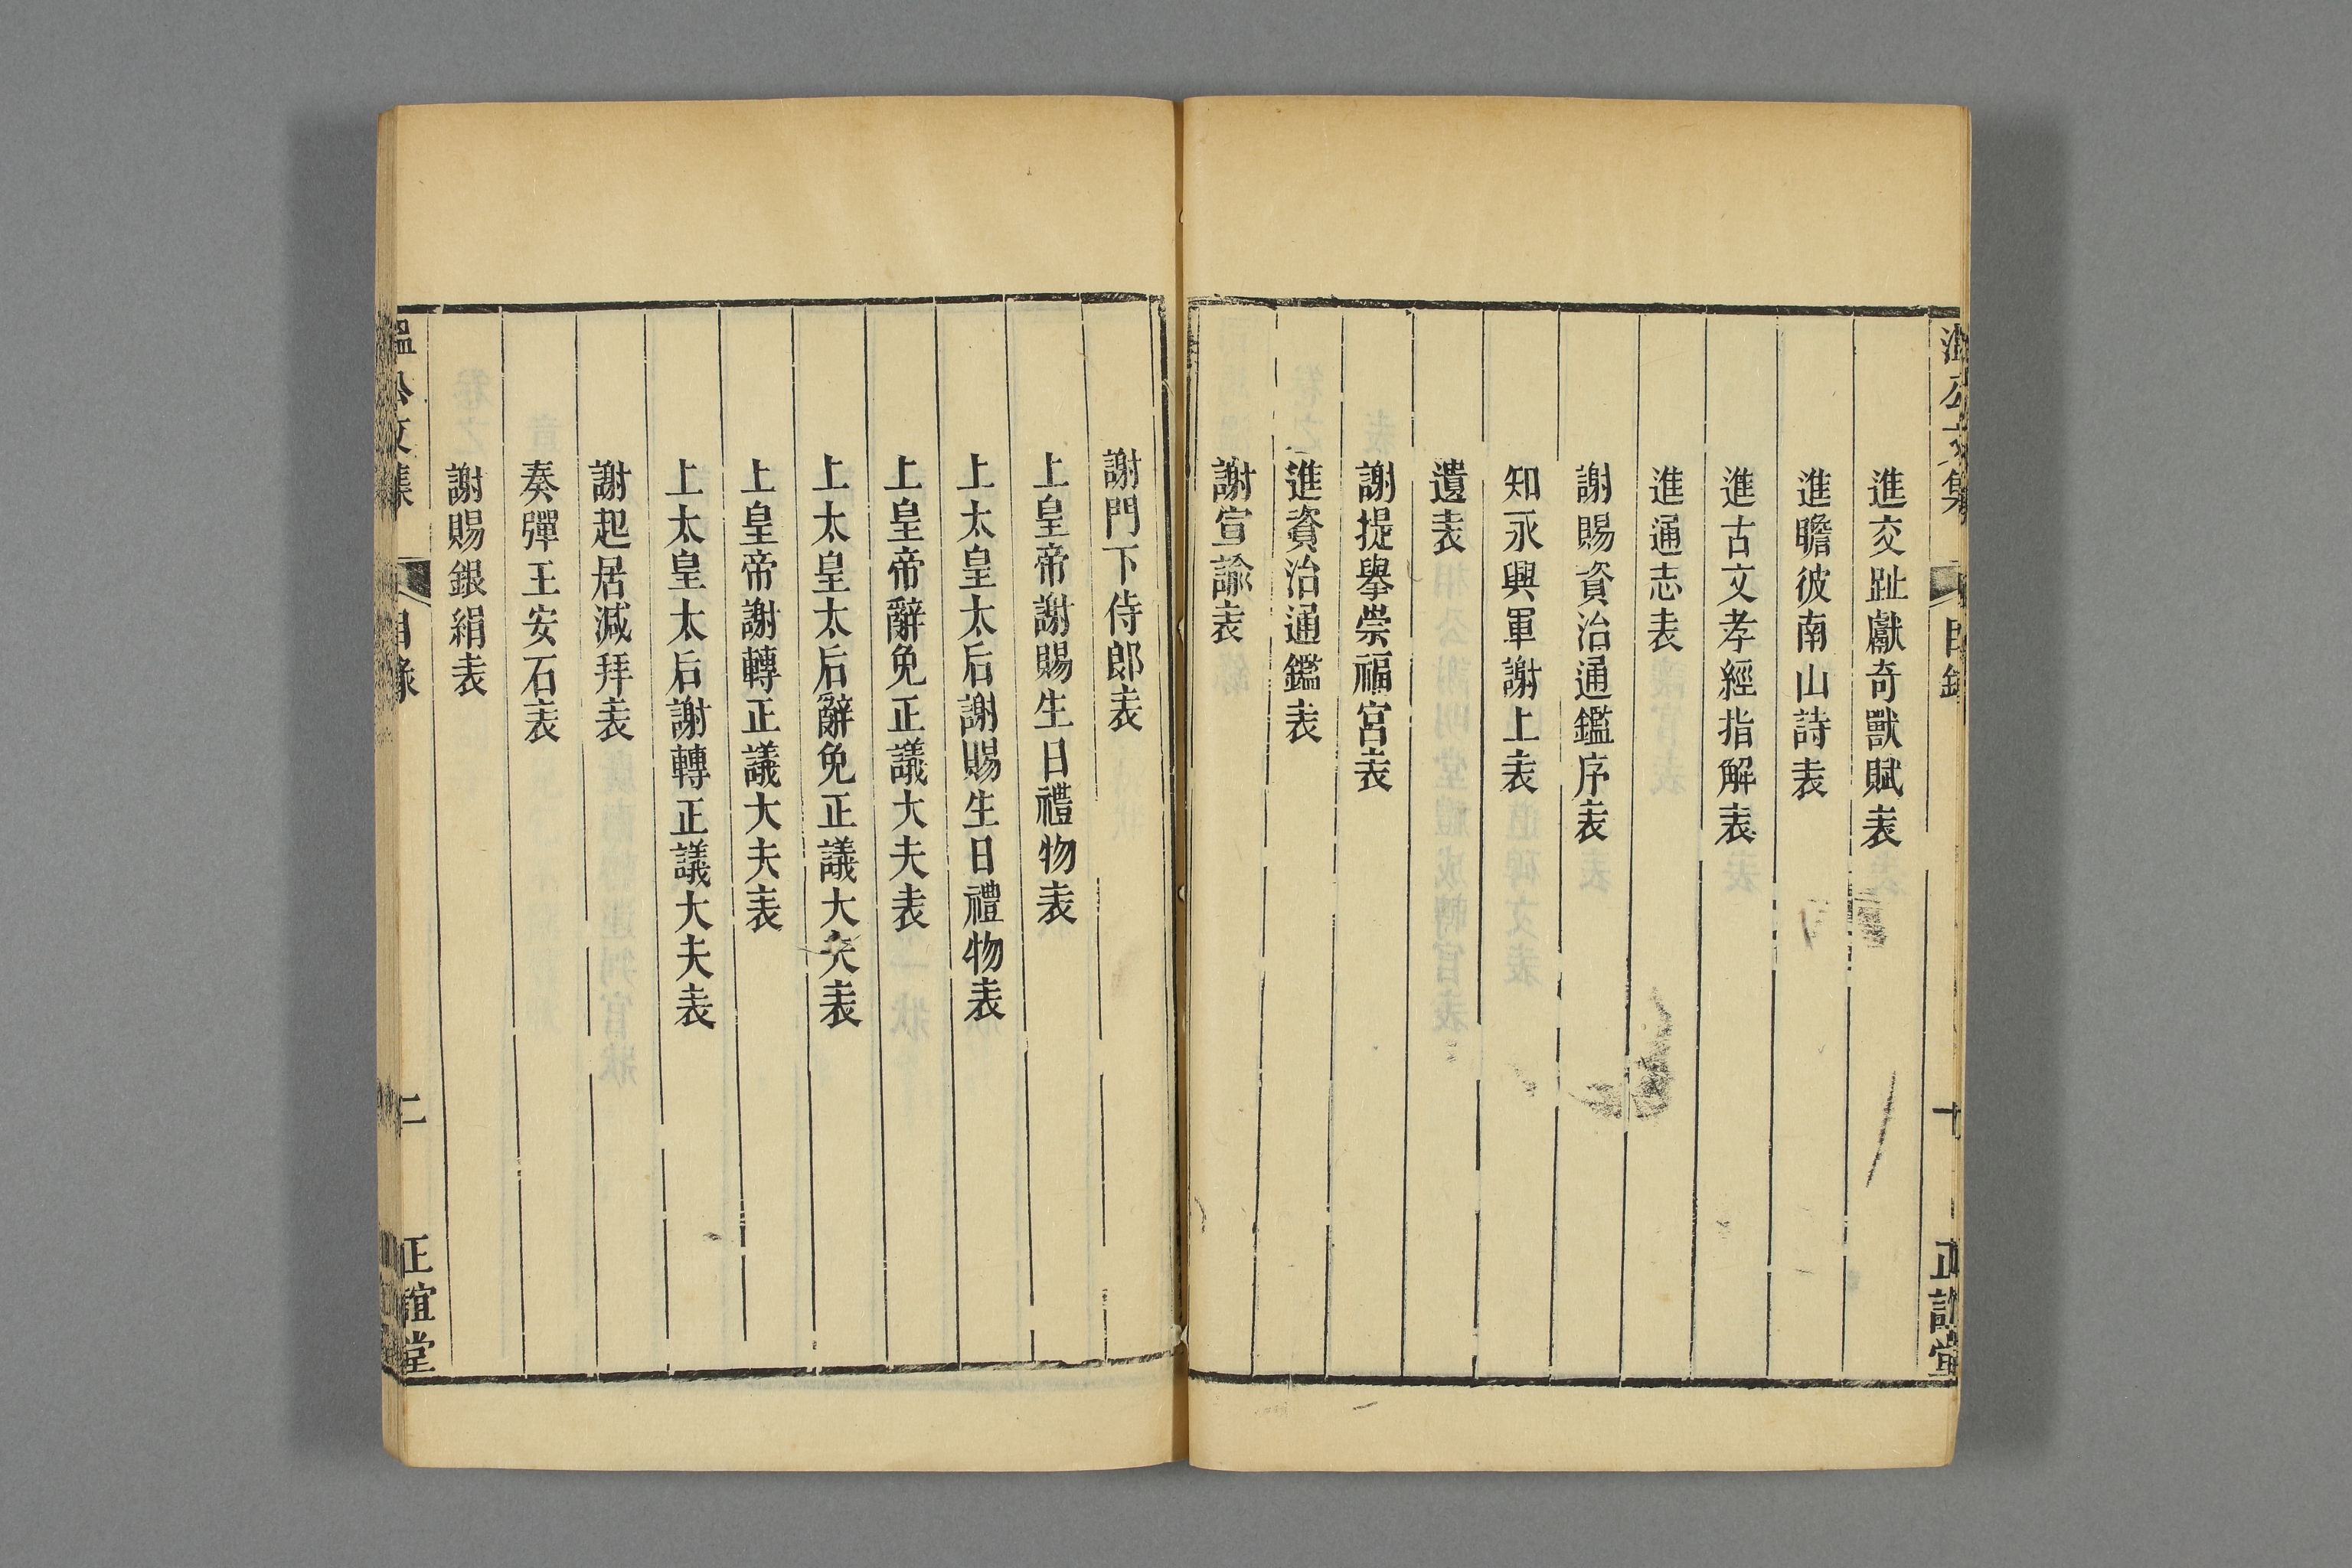 溫公文集
目錄
正誼堂
進交趾獻奇獸賦表
進瞻彼南山詩表
進古文孝經指解表
進通志表
謝賜資治通鑑序表
知永興軍謝上表
遺表
謝提舉崇福宮表
進資治通鑑表
謝宣諭表
謝門下侍郎表
上皇帝謝賜生日禮物表
上太皇太后謝賜生日禮物表
上皇帝辭免正議大夫表
上太皇太后辭免正議大夫表
上皇帝謝轉正議大夫表
上太皇太后謝轉正議大夫表
謝起居減拜表
奏彈王安石表
謝賜銀絹表
溫公文集
目錄
二
正誼堂